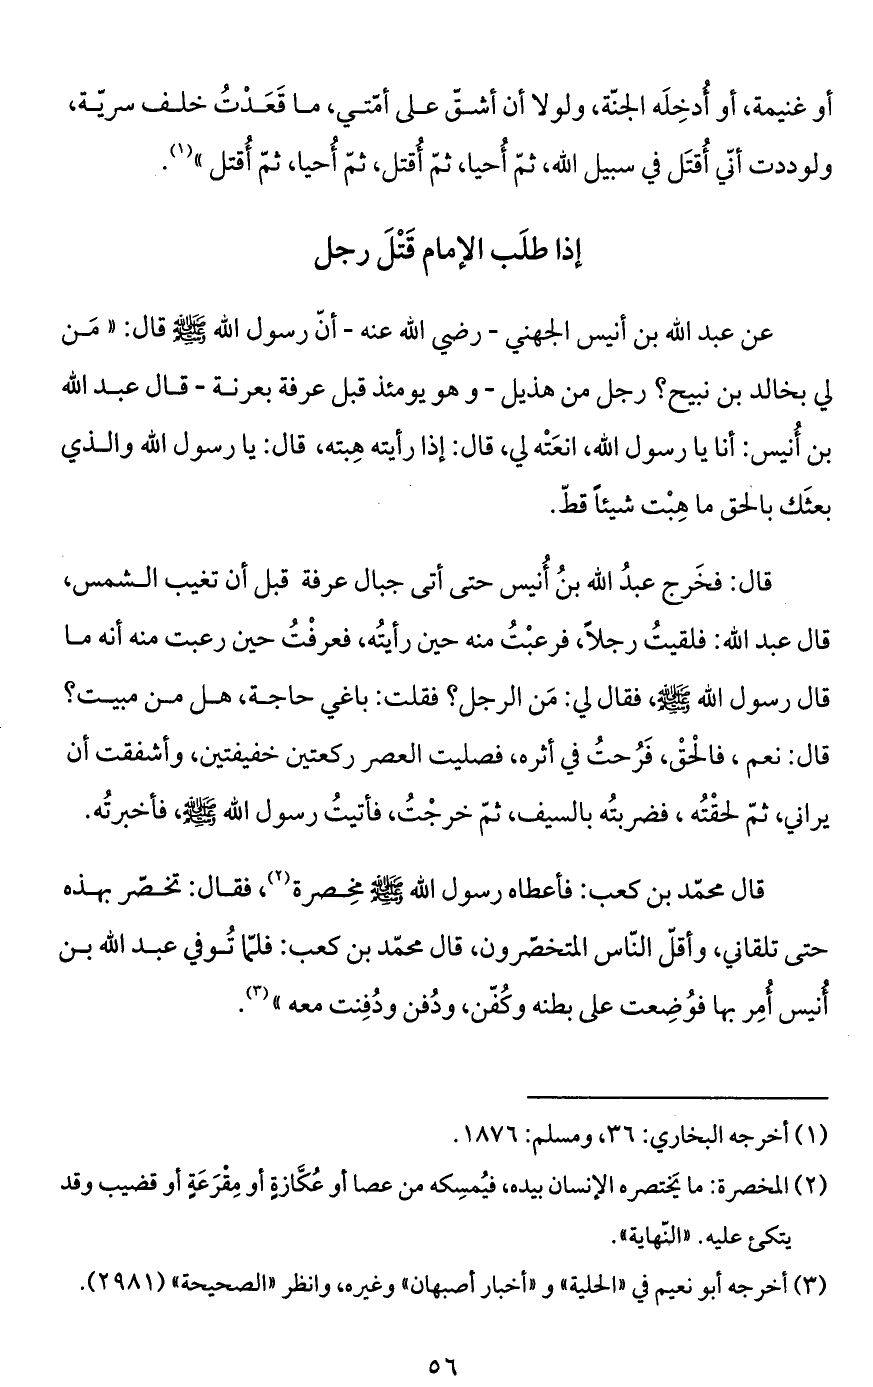 أو غنيمة، أو أُدخِلَه الجنّة، ولولا أن أشقّ على أمّتي، ما قَعَدْتُ خلف سريّة،
ولوددت أنّي أُقتَل في سبيل الله، ثمّ أُحيا، ثمّ أُقتل، ثمّ أُحيا، ثمّ أُقتل »(١).
إذا طلَب الإمام قَتْلَ رجل
عن عبد الله بن أنيس الجهني - رضي الله عنه - أنّ رسول الله ﷺ قال: « مَن
لي بخالد بن نبيح؟ رجل من هذيل - و هو يومئذ قبل عرفة بعرنة - قال عبد الله
بن أُنيس: أنا يا رسول الله، انعَتْه لي، قال: إذا رأيته هِبته، قال: يا رسول الله والذي
بعثَك بالحق ما هِبْت شيئاً قطّ.
قال: فخَرج عبدُ الله بنُ أُنيس حتى أتى جبال عرفة قبل أن تغيب الشمس،
قال عبد الله: فلقيتُ رجلاً، فرعبْتُ منه حين رأيتُه، فعرفْتُ حين رعبت منه أنه ما
قال رسول الله ﷺ، فقال لي: مَن الرجل؟ فقلت: باغي حاجة، هل من مبيت؟
قال: نعم ، فالْحقْ، فَرُحتُ في أثره، فصليت العصر ركعتين خفيفتين، وأشفقت أن
يراني، ثمّ لحقْتُه ، فضربتُه بالسيف، ثمّ خرجْتُ، فأتيتُ رسول الله ﷺ، فأخبرتُه.
قال محمّد بن كعب: فأعطاه رسول الله ﷺ مِخصرة(٢)، فقال: تخصّر بهذه
حتى تلقاني، وأقلّ النّاس المتخصّرون، قال محمّد بن كعب: فلمّا تُوفي عبد الله بن
أُنيس أُمِر بها فوُضِعت على بطنه وكُفّن، ودُفن ودُفِنت معه »(٣).
(١) أخرجه البخاري: ٣٦، ومسلم: ١٨٧٦.
(٢) المخصرة: ما يَختصره الإنسان بيده، فيُمسِكه من عصا أو عُكَّازةٍ أو مِقْرَعَةٍ أو قضيب وقد
يتكئ عليه. «النّهاية».
(٣) أخرجه أبو نعيم في «الحلية» و «أخبار أصبهان» وغيره، وانظر «الصحيحة» (٢٩٨١).
٥٦